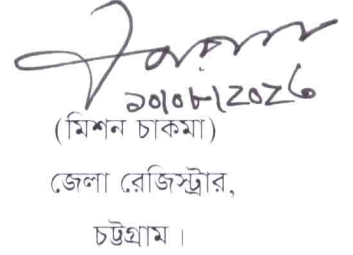 ১০/০৮/2026
(মিশন চাকমা)
জেলা রেজিস্ট্রার,
চট্টগ্রাম।